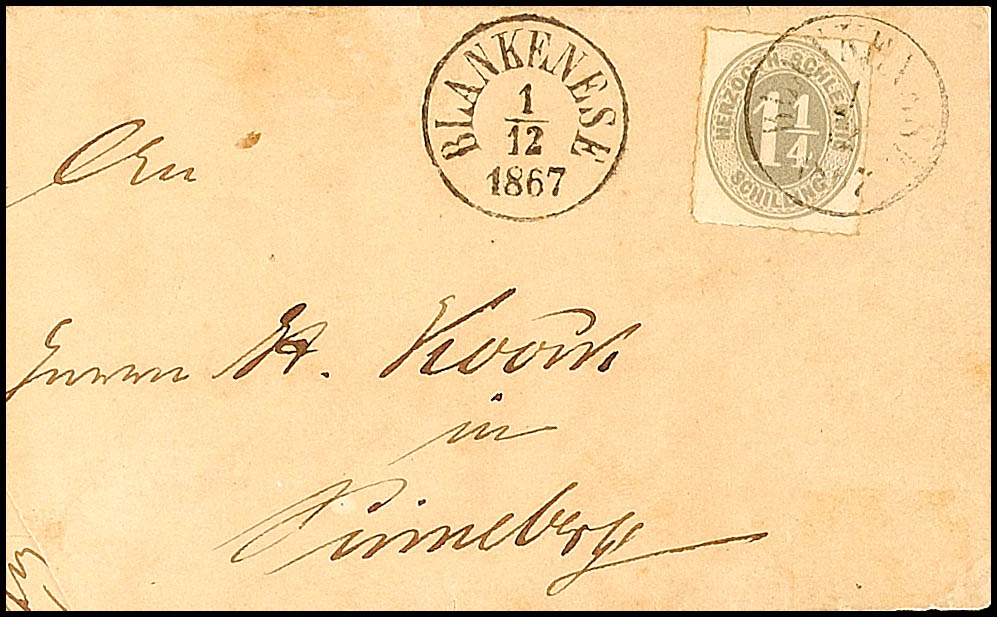 BLANKENESE
1/12
1867
HERZOGTH. SCHLESWIG
1 1/4
SCHILLING
An
Herrn H.
in
Pinneberg